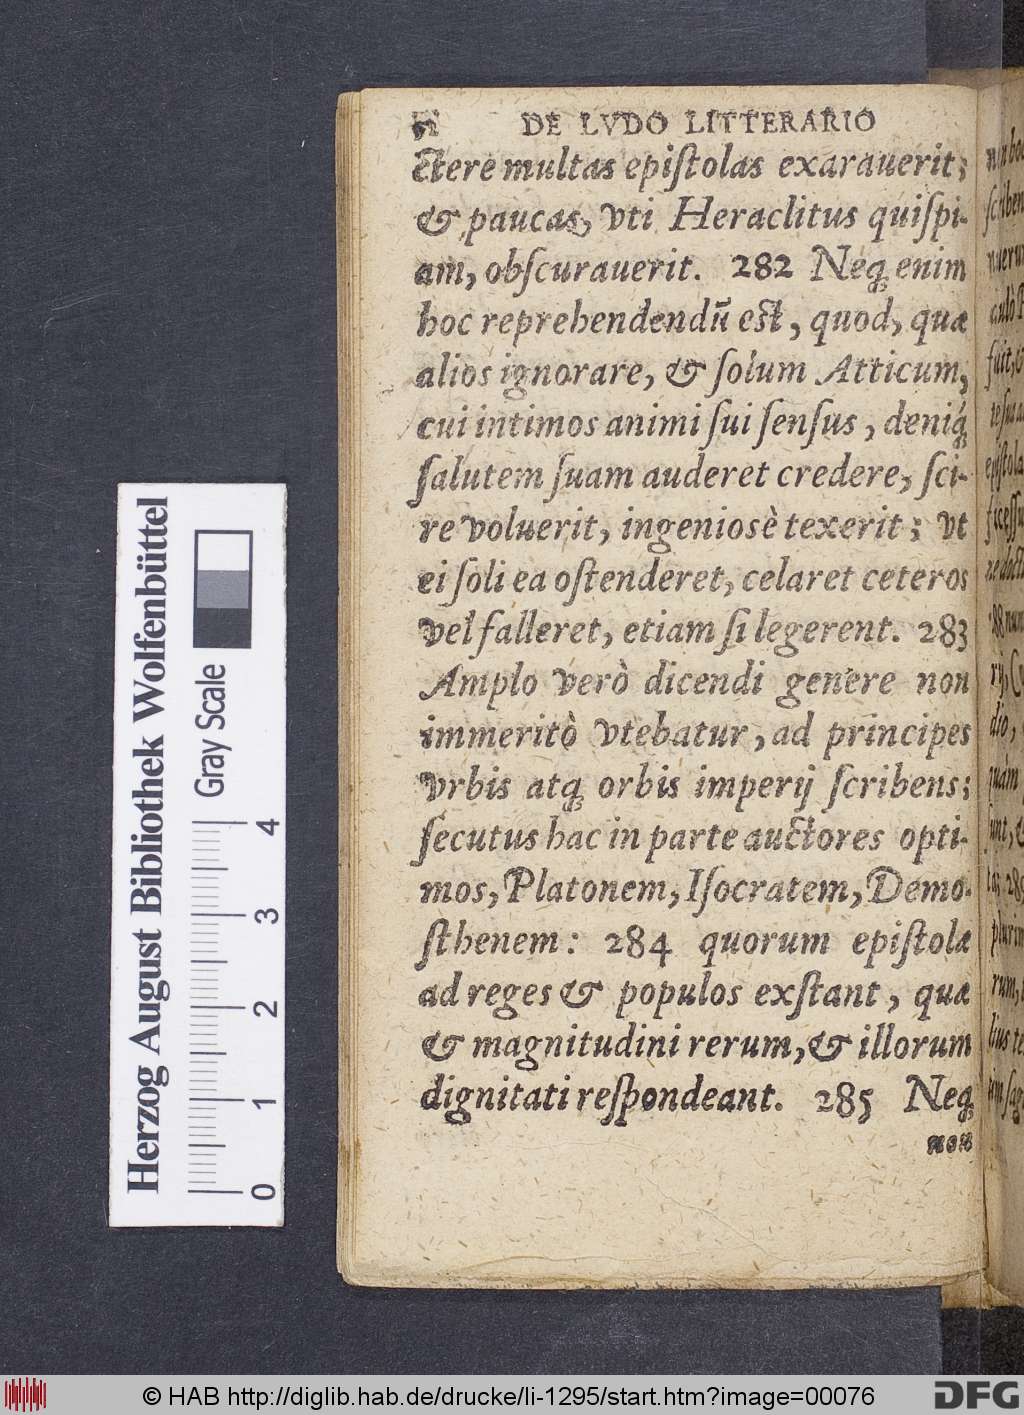 DE LVDO LITTERARIO
ctere multas epiſtolas exarauerit;
& paucas, vti Heraclitus quiſpi-
am, obſcurauerit. 282 Neq; enim
hoc reprehendendū est, quod, quæ
alios ignorare, & ſolum Atticum,
cui intimos animi ſui ſenſus, deniq́;
ſalutem ſuam auderet credere, ſci-
re voluerit, ingeniosè texerit; vt
ei ſoli ea oſtenderet, celaret ceteros
vel falleret, etiam ſi legerent. 283
Amplo verò dicendi genere non
immeritò vtebatur, ad principes
vrbis atq; orbis imperij ſcribens;
ſecutus hac in parte auctores opti-
mos, Platonem, Iſocratem, Demo-
ſthenem: 284 quorum epiſtolæ
ad reges & populos exſtant, quæ
& magnitudini rerum, & illorum
dignitati reſpondeant. 285 Neq;
non
Herzog August Bibliothek Wolfenbüttel
Gray Scale
0 1 2 3 4
© HAB http://diglib.hab.de/drucke/li-1295/start.htm?image=00076
DFG